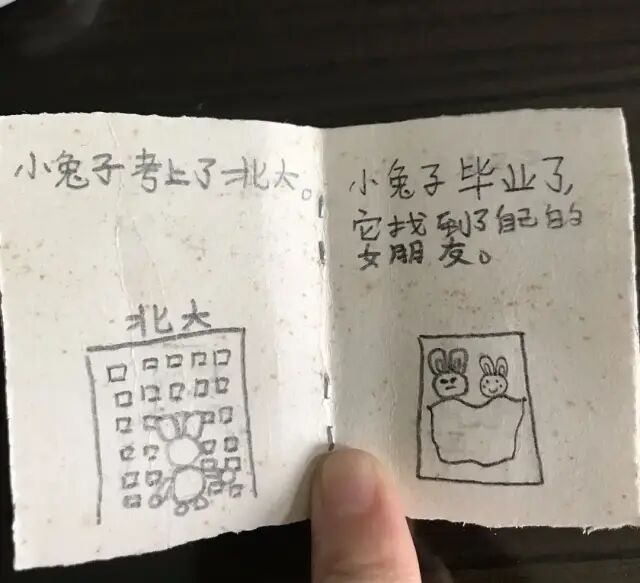 小兔子考上了北大。
北大
小兔子毕业了,
它找到了自己的
女朋友。